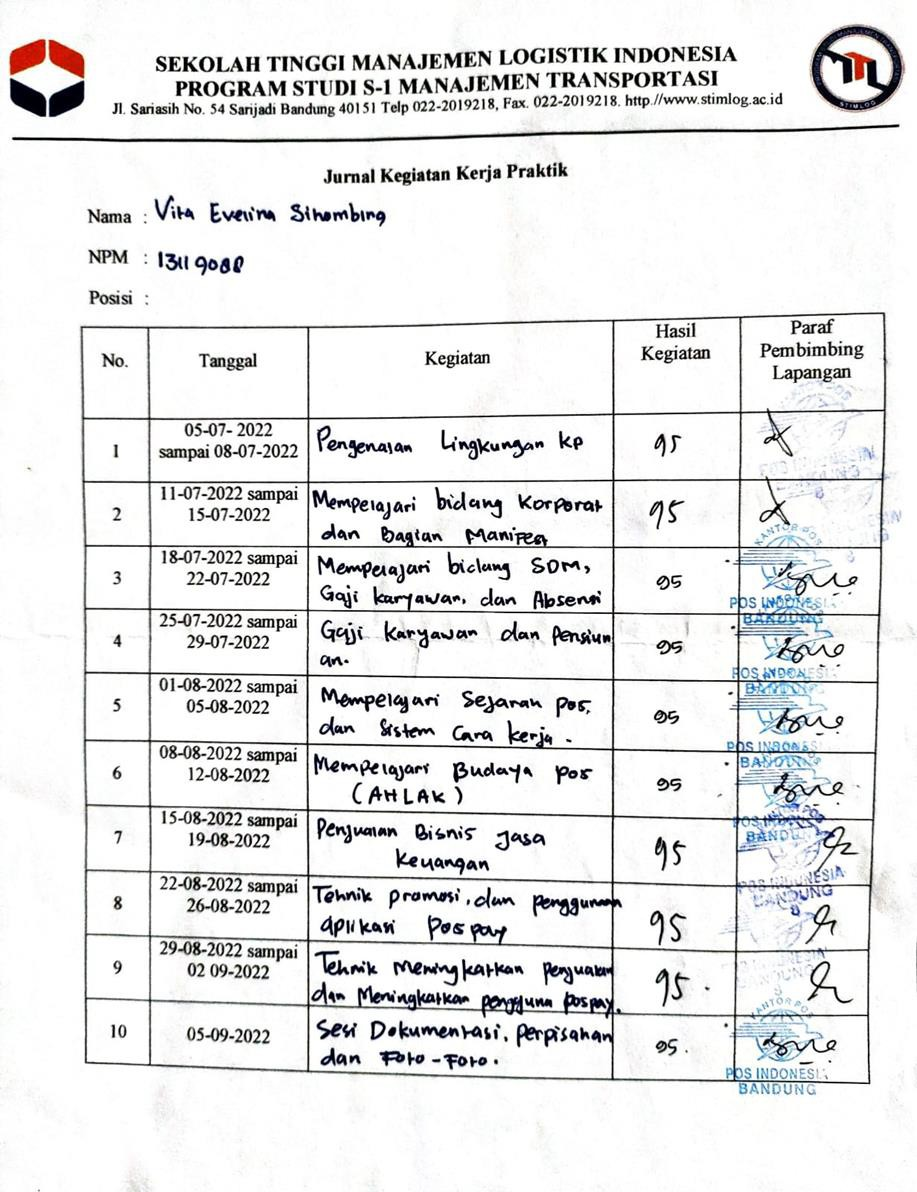 SEKOLAH TINGGI MANAJEMEN LOGISTIK INDONESIA
PROGRAM STUDI S-1 MANAJEMEN TRANSPORTASI
Jl. Sariasih No. 54 Sarijadi Bandung 40151 Telp 022-2019218, Fax. 022-2019218. http.//www.stimlog.ac.id
STIMLOG
Jurnal Kegiatan Kerja Praktik
Nama : Vita Evelina Sihombing
NPM : 13119088
Posisi :
No. Tanggal Kegiatan Hasil Kegiatan Paraf Pembimbing Lapangan
1 05-07- 2022 sampai 08-07-2022 Pengenalan Lingkungan KP 95
2 11-07-2022 sampai 15-07-2022 Mempelajari bidang Korporat dan Bagian Manifest 95
3 18-07-2022 sampai 22-07-2022 Mempelajari bidang SDM, Gaji Karyawan, dan Absensi 95
4 25-07-2022 sampai 29-07-2022 Gaji Karyawan dan Pensiun an. 95
5 01-08-2022 sampai 05-08-2022 Mempelajari Sejarah Pos, dan Sistem Cara Kerja. 95
6 08-08-2022 sampai 12-08-2022 Mempelajari Budaya Pos (AHLAK) 95
7 15-08-2022 sampai 19-08-2022 Penjualan Bisnis Jasa Keuangan 95
8 22-08-2022 sampai 26-08-2022 Tehnik promosi, dan penggunaan aplikasi Pospay 95
9 29-08-2022 sampai 02 09-2022 Tehnik Meningkatkan penjualan dan Meningkatkan pengguna pospay. 95.
10 05-09-2022 Sesi Dokumentasi, perpisahan dan Foto-Foto. 95.
KANTOR POS
POS INDONESIA
BANDUNG